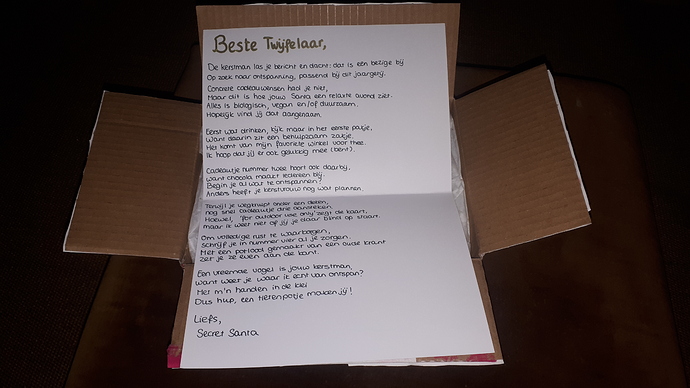 Beste Twijfelaar,
De kerstman las je bericht en dacht: dat is een bezige bij
Op zoek naar ontspanning, passend bij dit jaargetij.
Concrete cadeauwensen had je niet,
Maar dit is hoe jouw Santa een relaxte avond ziet.
Alles is biologisch, vegan en/of duurzaam,
Hopelijk vind jij dat aangenaam.
Eerst wat drinken, kijk maar in het eerste pakje,
Want daarin zit een behulpzaam zakje.
Het komt van mijn favoriete winkel voor thee.
Ik hoop dat jij er ook gelukkig mee (bent).
Cadeautje nummer twee hoort ook daarbij,
Want chocola maakt iedereen blij.
Begin je al wat te ontspannen?
Anders heeft je kerstvrouw nog wat plannen.
Terwijl je wegkruipt onder een deken,
nog snel cadeautje drie aansteken.
Hoewel, 'for outdoor use only' zegt de kaart,
maar ik weet niet of jij je daar blind op staart.
Om volledige rust te waarborgen,
schrijf je in nummer vier al je zorgen.
Met een potlood gemaakt van een oude krant
zet je ze even aan de kant.
Een vreemde vogel is jouw kerstman,
want weet je waar ik echt van ontspan?
Met m'n handen in de klei
Dus hup, een petenpotje maken jij!
Liefs,
Secret Santa